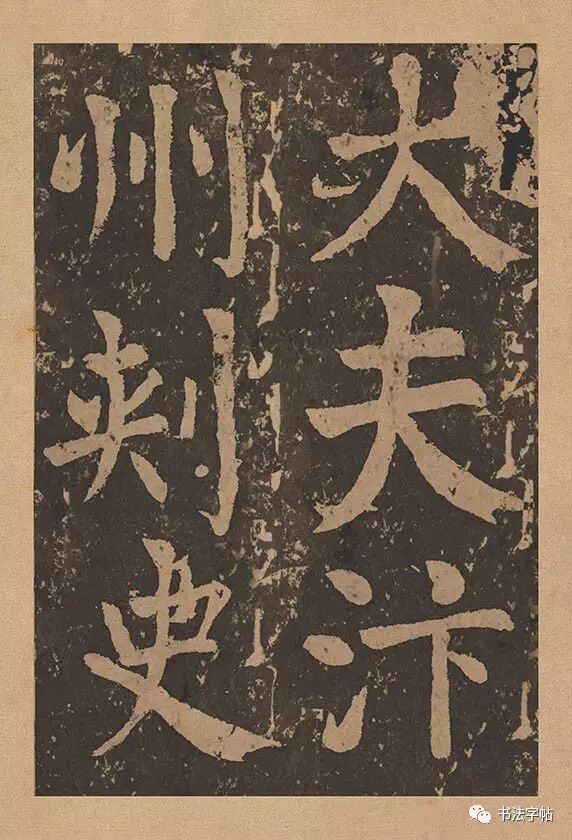 大夫汴
州刺史
书法字帖